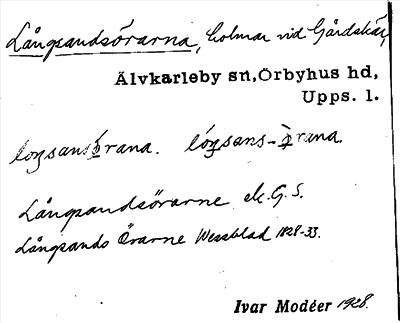 Långsandsörarna, holmar vid Gårdskär,
Älvkarleby sn, Örbyhus hd,
Upps. l.
Långsandsörarne ek. G. S.
Långsands Örarne Wessblad 1828-33.
Ivar Modéer 1928.